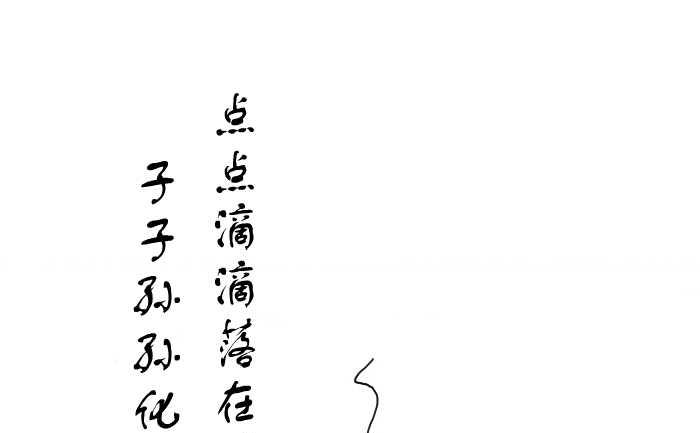 点点滴滴落在
子子孙孙化